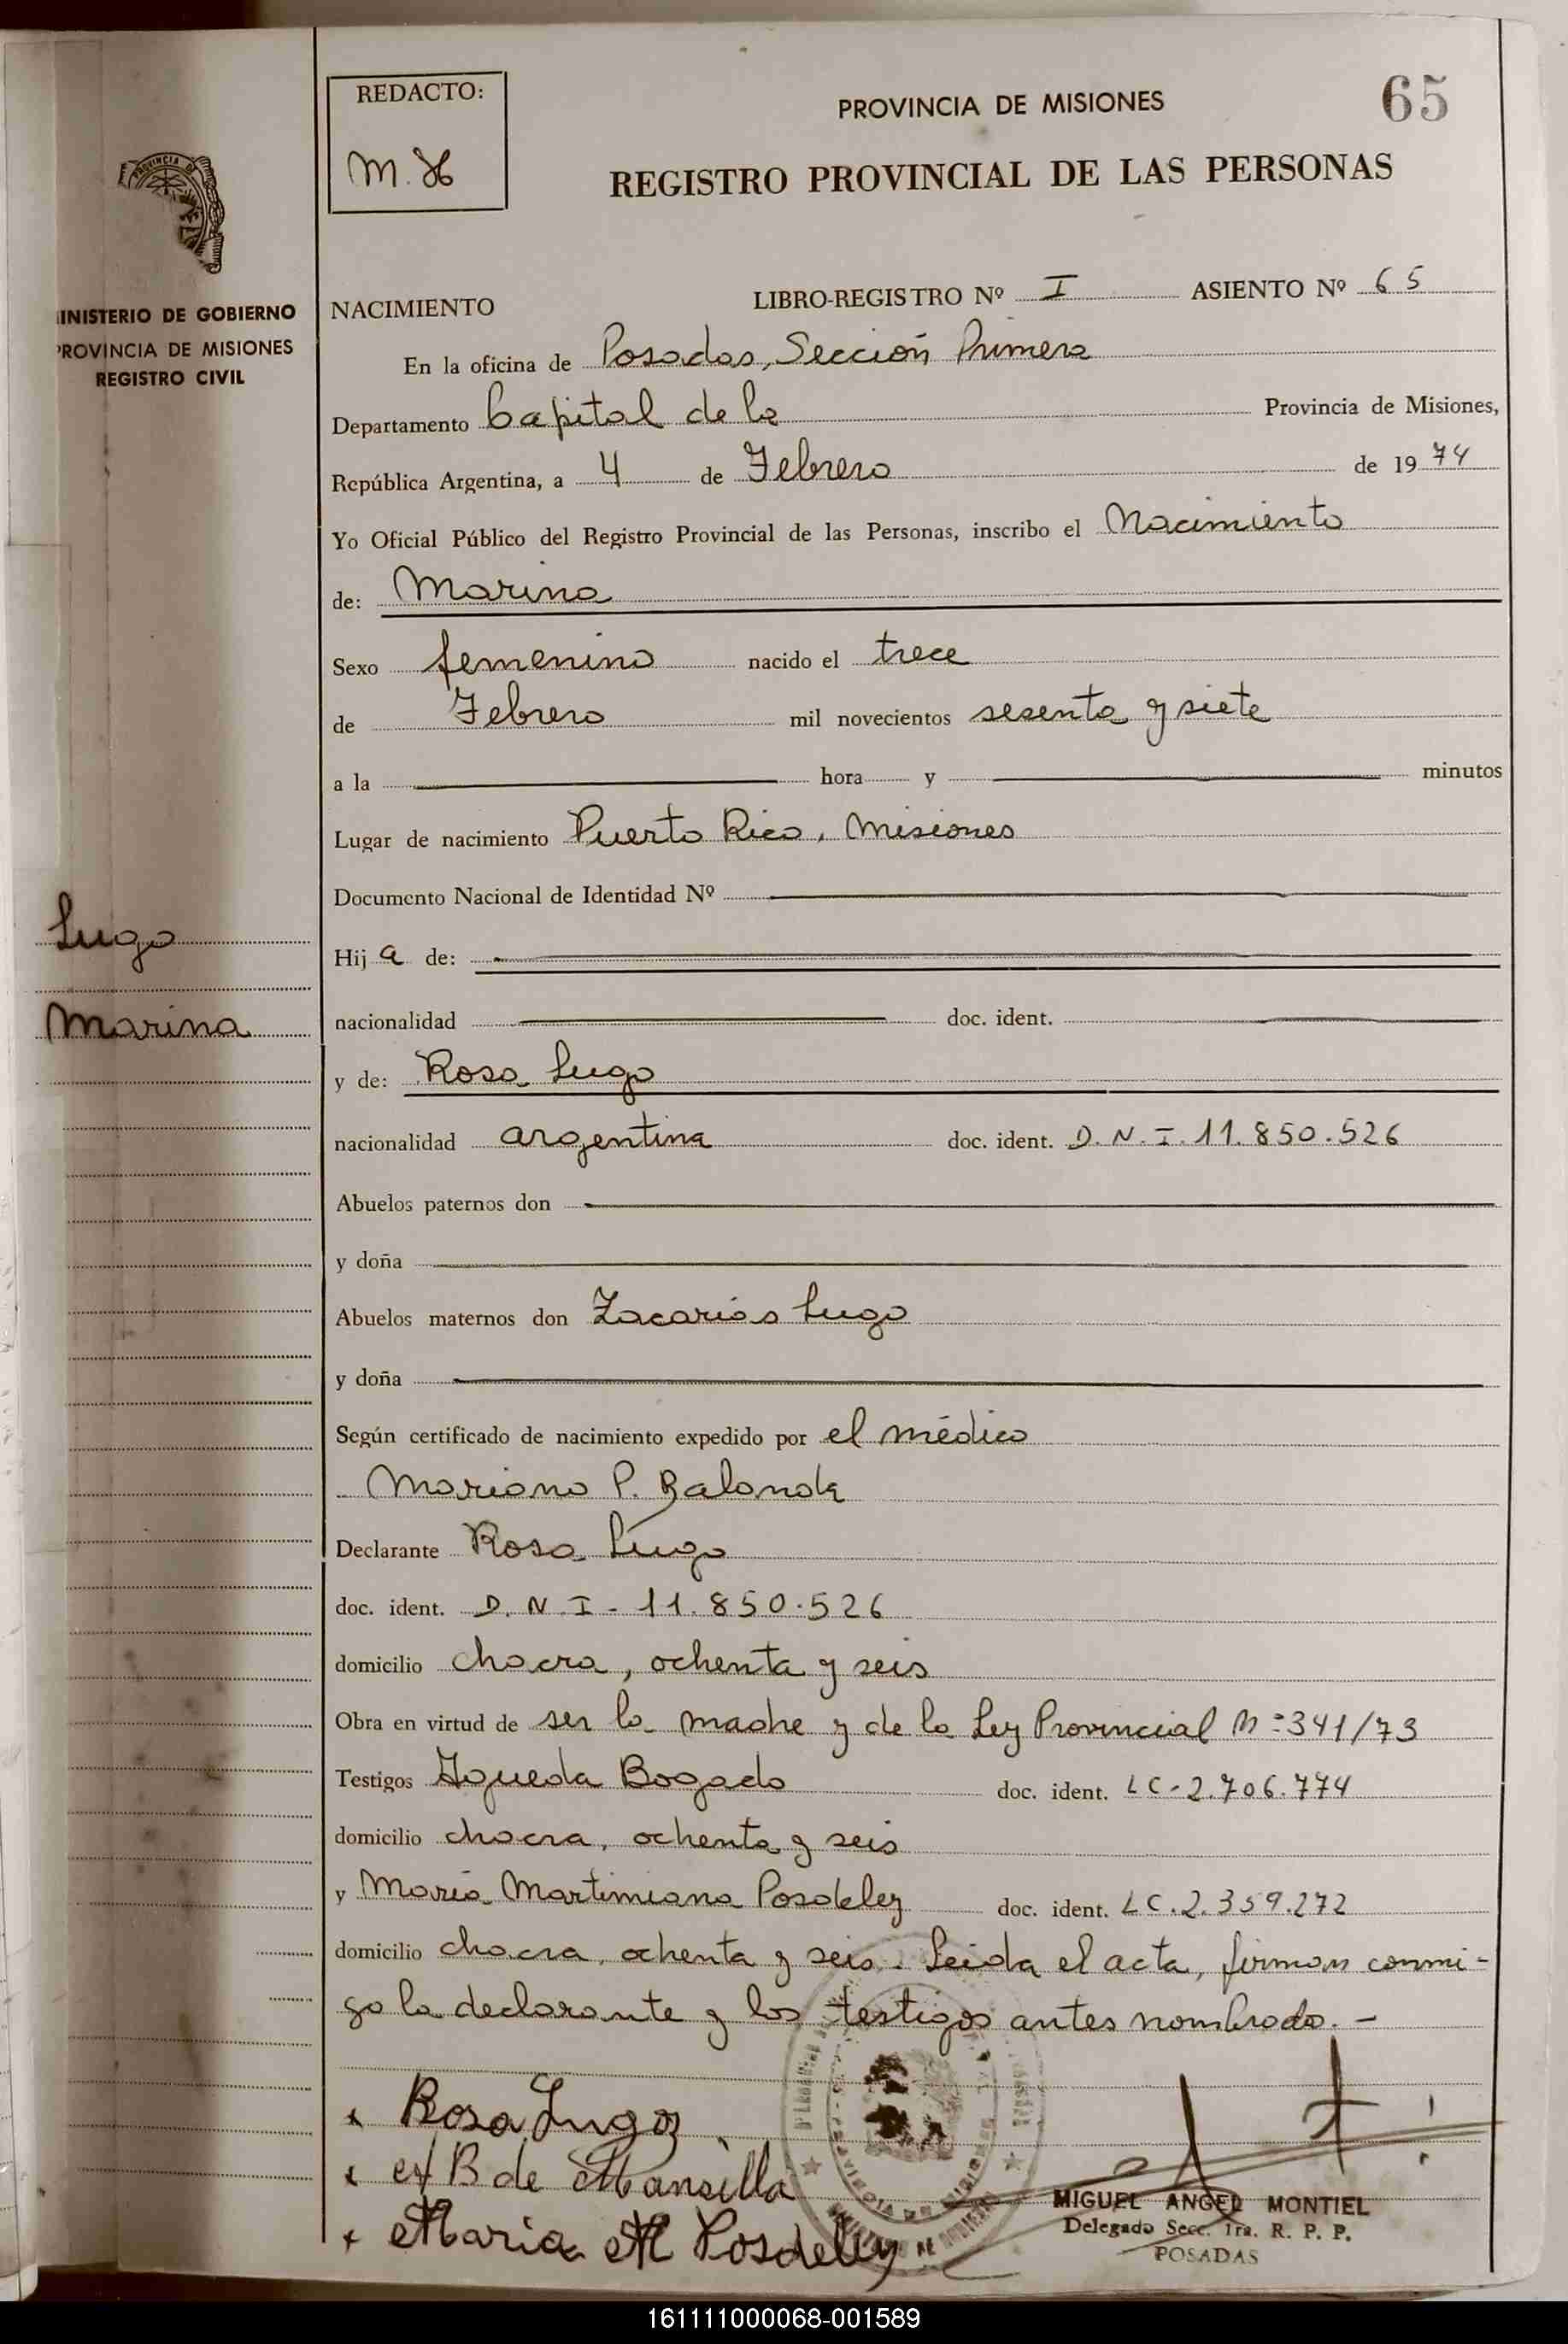 REDACTO:
PROVINCIA DE MISIONES
65
REGISTRO PROVINCIAL DE LAS PERSONAS
MINISTERIO DE GOBIERNO
PROVINCIA DE MISIONES
REGISTRO CIVIL
NACIMIENTO LIBRO-REGISTRO Nº I ASIENTO Nº 65
En la oficina de Posadas, Sección Primera
Departamento Capital de la Provincia de Misiones,
República Argentina, a 4 de Febrero de 1974
Yo Oficial Público del Registro Provincial de las Personas, inscribo el Nacimiento
de: Marina
Sexo femenino nacido el trece
de Febrero mil novecientos sesenta y siete
a la hora y minutos
Lugar de nacimiento Puerto Rico, Misiones
Documento Nacional de Identidad Nº
Lugo
Hija de:
Marina
nacionalidad doc. ident.
y de: Rosa Lugo
nacionalidad argentina doc. ident. D.N.I. 11.850.526
Abuelos paternos don
y doña
Abuelos maternos don Zacarías Lugo
y doña
Según certificado de nacimiento expedido por el médico
Mariano P.
Declarante Rosa Lugo
doc. ident. D.N.I - 11.850.526
domicilio chacra, ochenta y seis
Obra en virtud de ser la madre y de la Ley Provincial Nº 341/73
Testigos Agueda Bogado doc. ident. LC-2.706.774
domicilio chacra, ochenta y seis
y María Martimiana Posdeley doc. ident. LC.2.359.272
domicilio chacra, ochenta y seis. Leida el acta, firman conmi-
go la declarante y los testigos antes nombrado. -
x Rosa Lugo
x B de Mansilla
x Maria M Posdeley
MIGUEL ANGEL MONTIEL
Delegado Secc. 1ra. R. P. P.
POSADAS
161111000068-001589